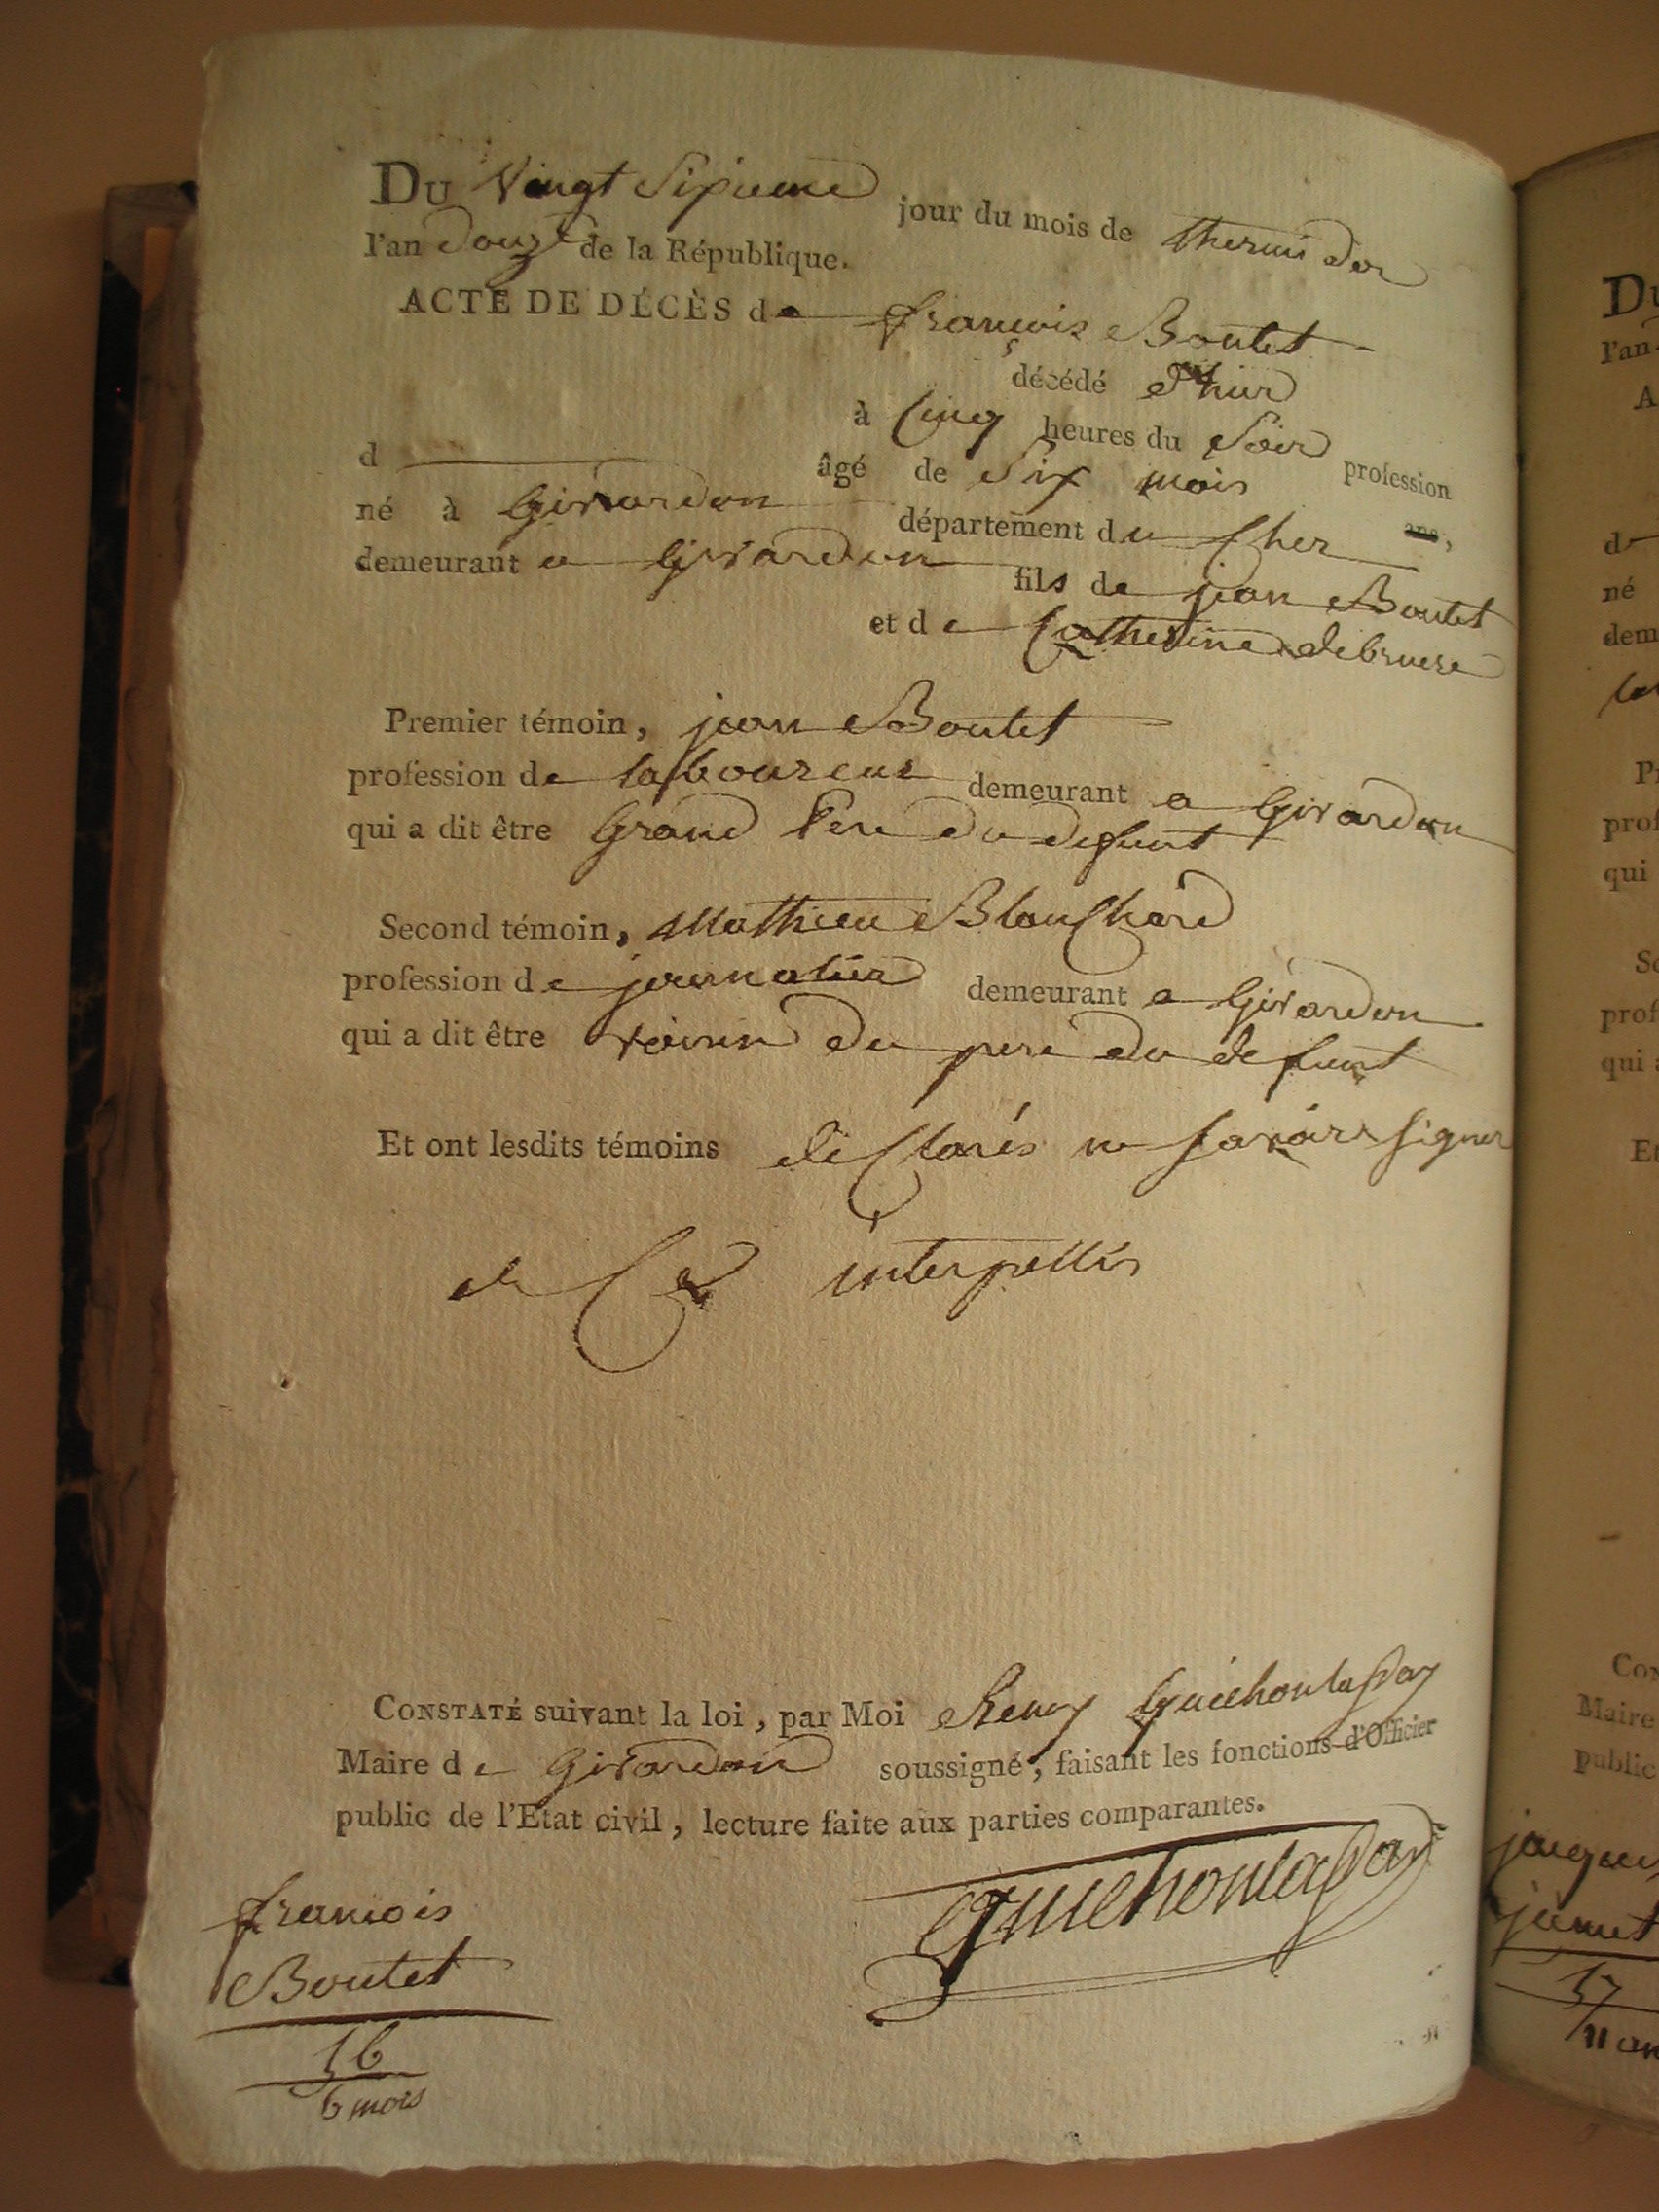 DU Vingt Sixieme jour du mois de thermidor
l'an douze de la République.
ACTE DE DÉCÈS de francois Boutet
décédé d'hier
à Cinq heures du Soir profession
d âgé de Six mois ans,
né à Givardon département du Cher
demeurant a Givardon fils de jean Boutet
et de Catherine debruere
Premier témoin, jean Boutet
profession de laboureur demeurant a Givardon
qui a dit être Grand Pere du defunt
Second témoin, Mathieu Blanchard
profession de journalier demeurant a Givardon
qui a dit être voisin du pere du defunt
Et ont lesdits témoins declarés ne savoir signer
de Ce interpellés
CONSTATÉ suivant la loi, par Moi Remy
Maire de Givardon soussigné, faisant les fonctions d'Officier
public de l'Etat civil, lecture faite aux parties comparantes.
francois
Boutet
6 mois
DU
l'an
A
d
né
dem
prof
qui
prof
qui
Et
Maire
public